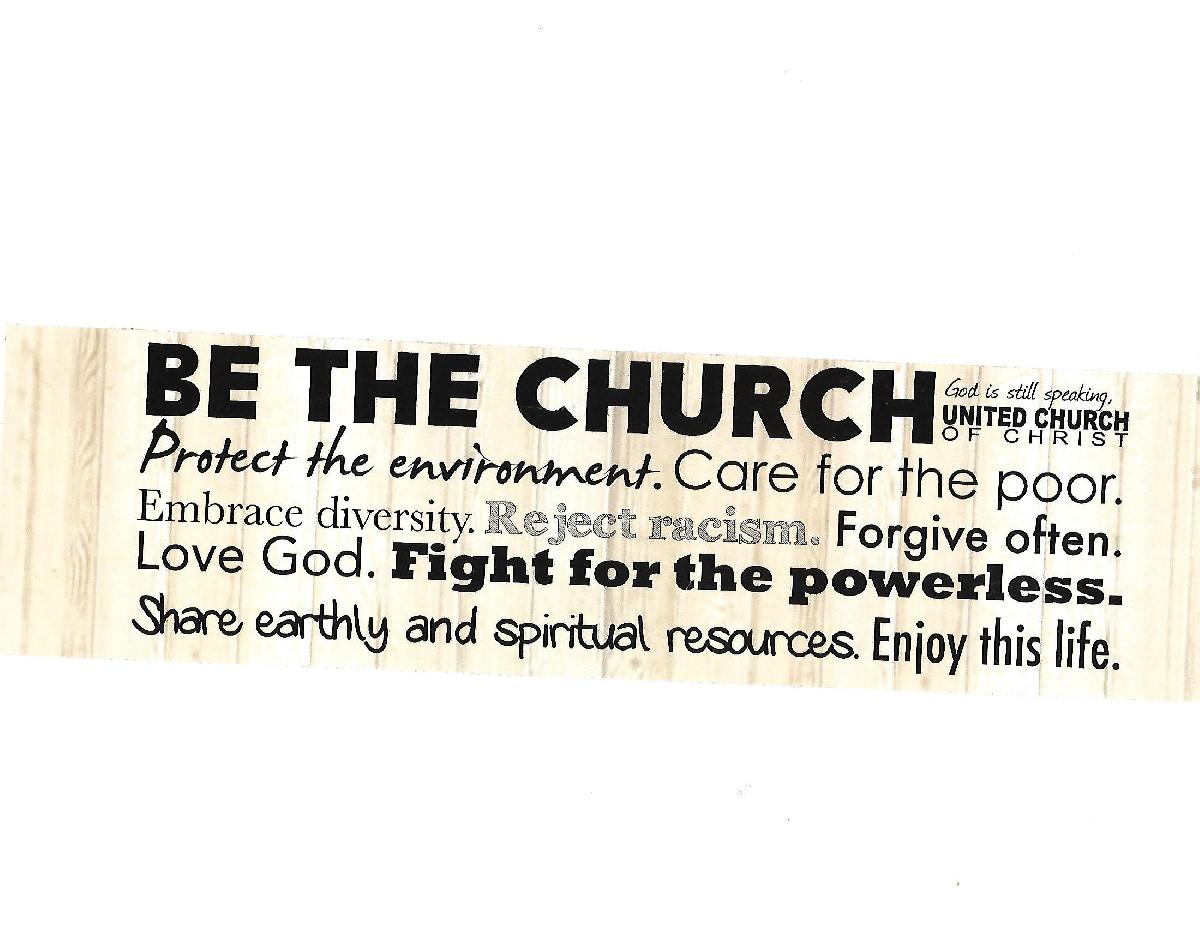 BE THE CHURCH
God is still speaking,
UNITED CHURCH
OF CHRIST
Protect the environment. Care for the poor.
Embrace diversity. Reject racism. Forgive often.
Love God. Fight for the powerless.
Share earthly and spiritual resources. Enjoy this life.